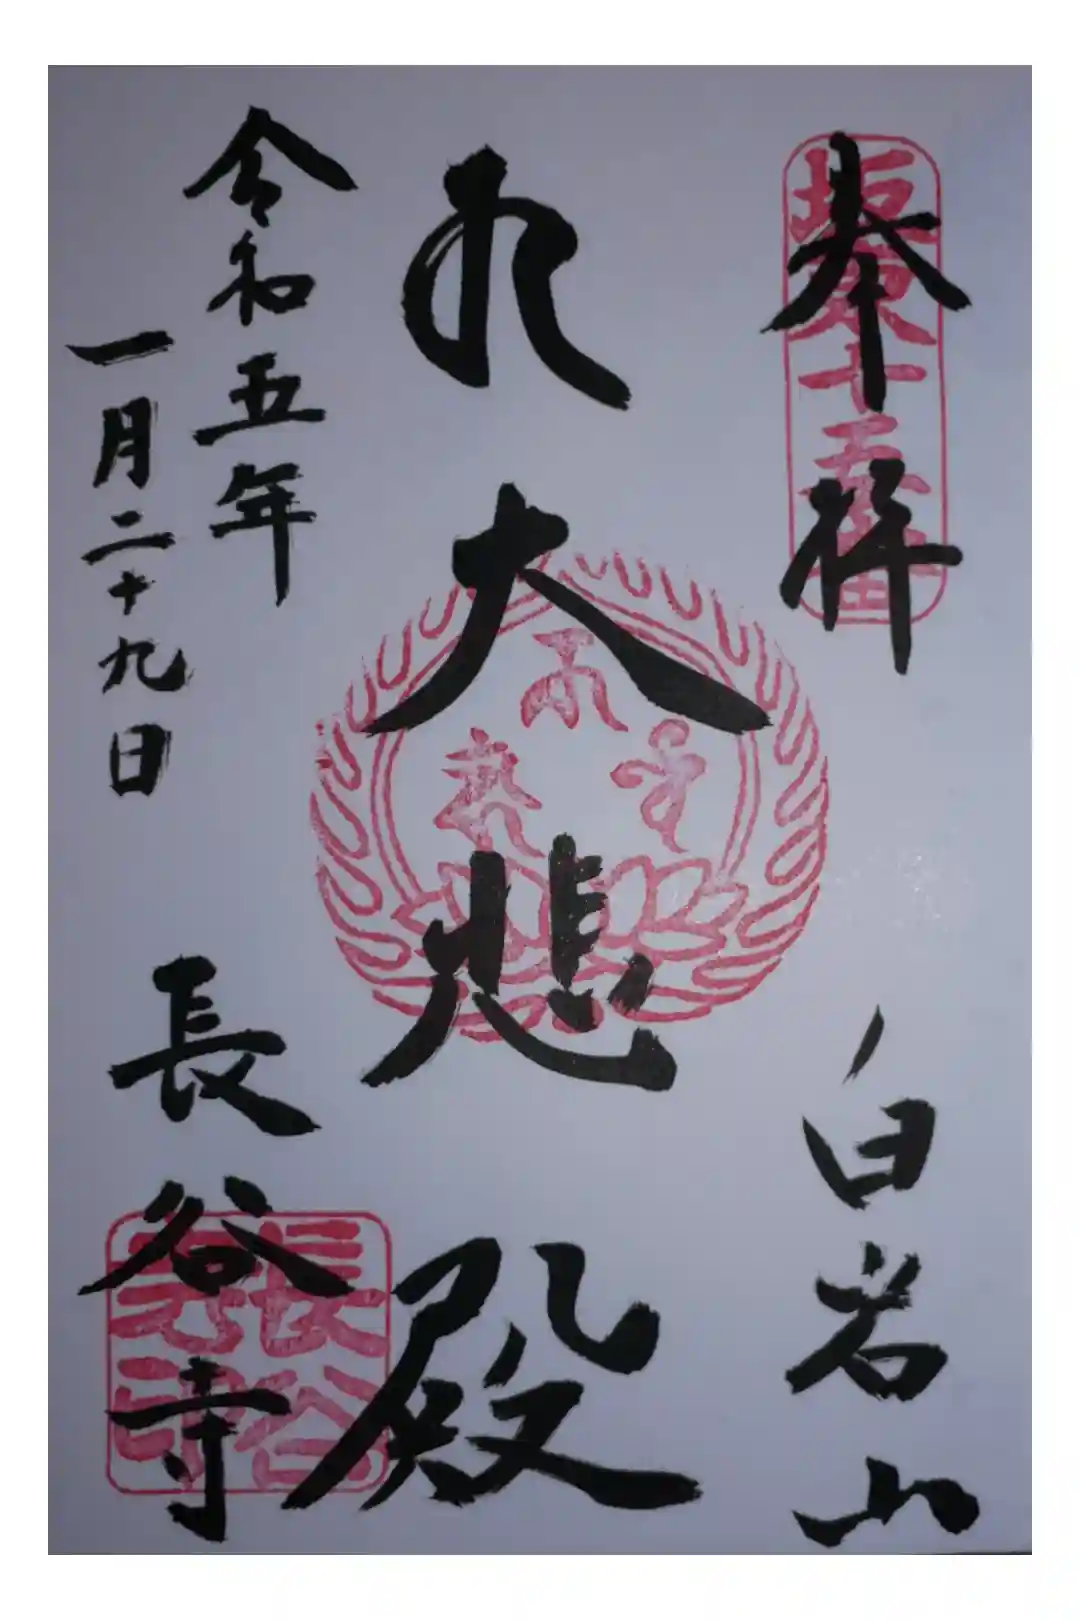 奉拝
坂東十五番
白岩山
大悲殿
令和五年
一月二十九日
長谷寺